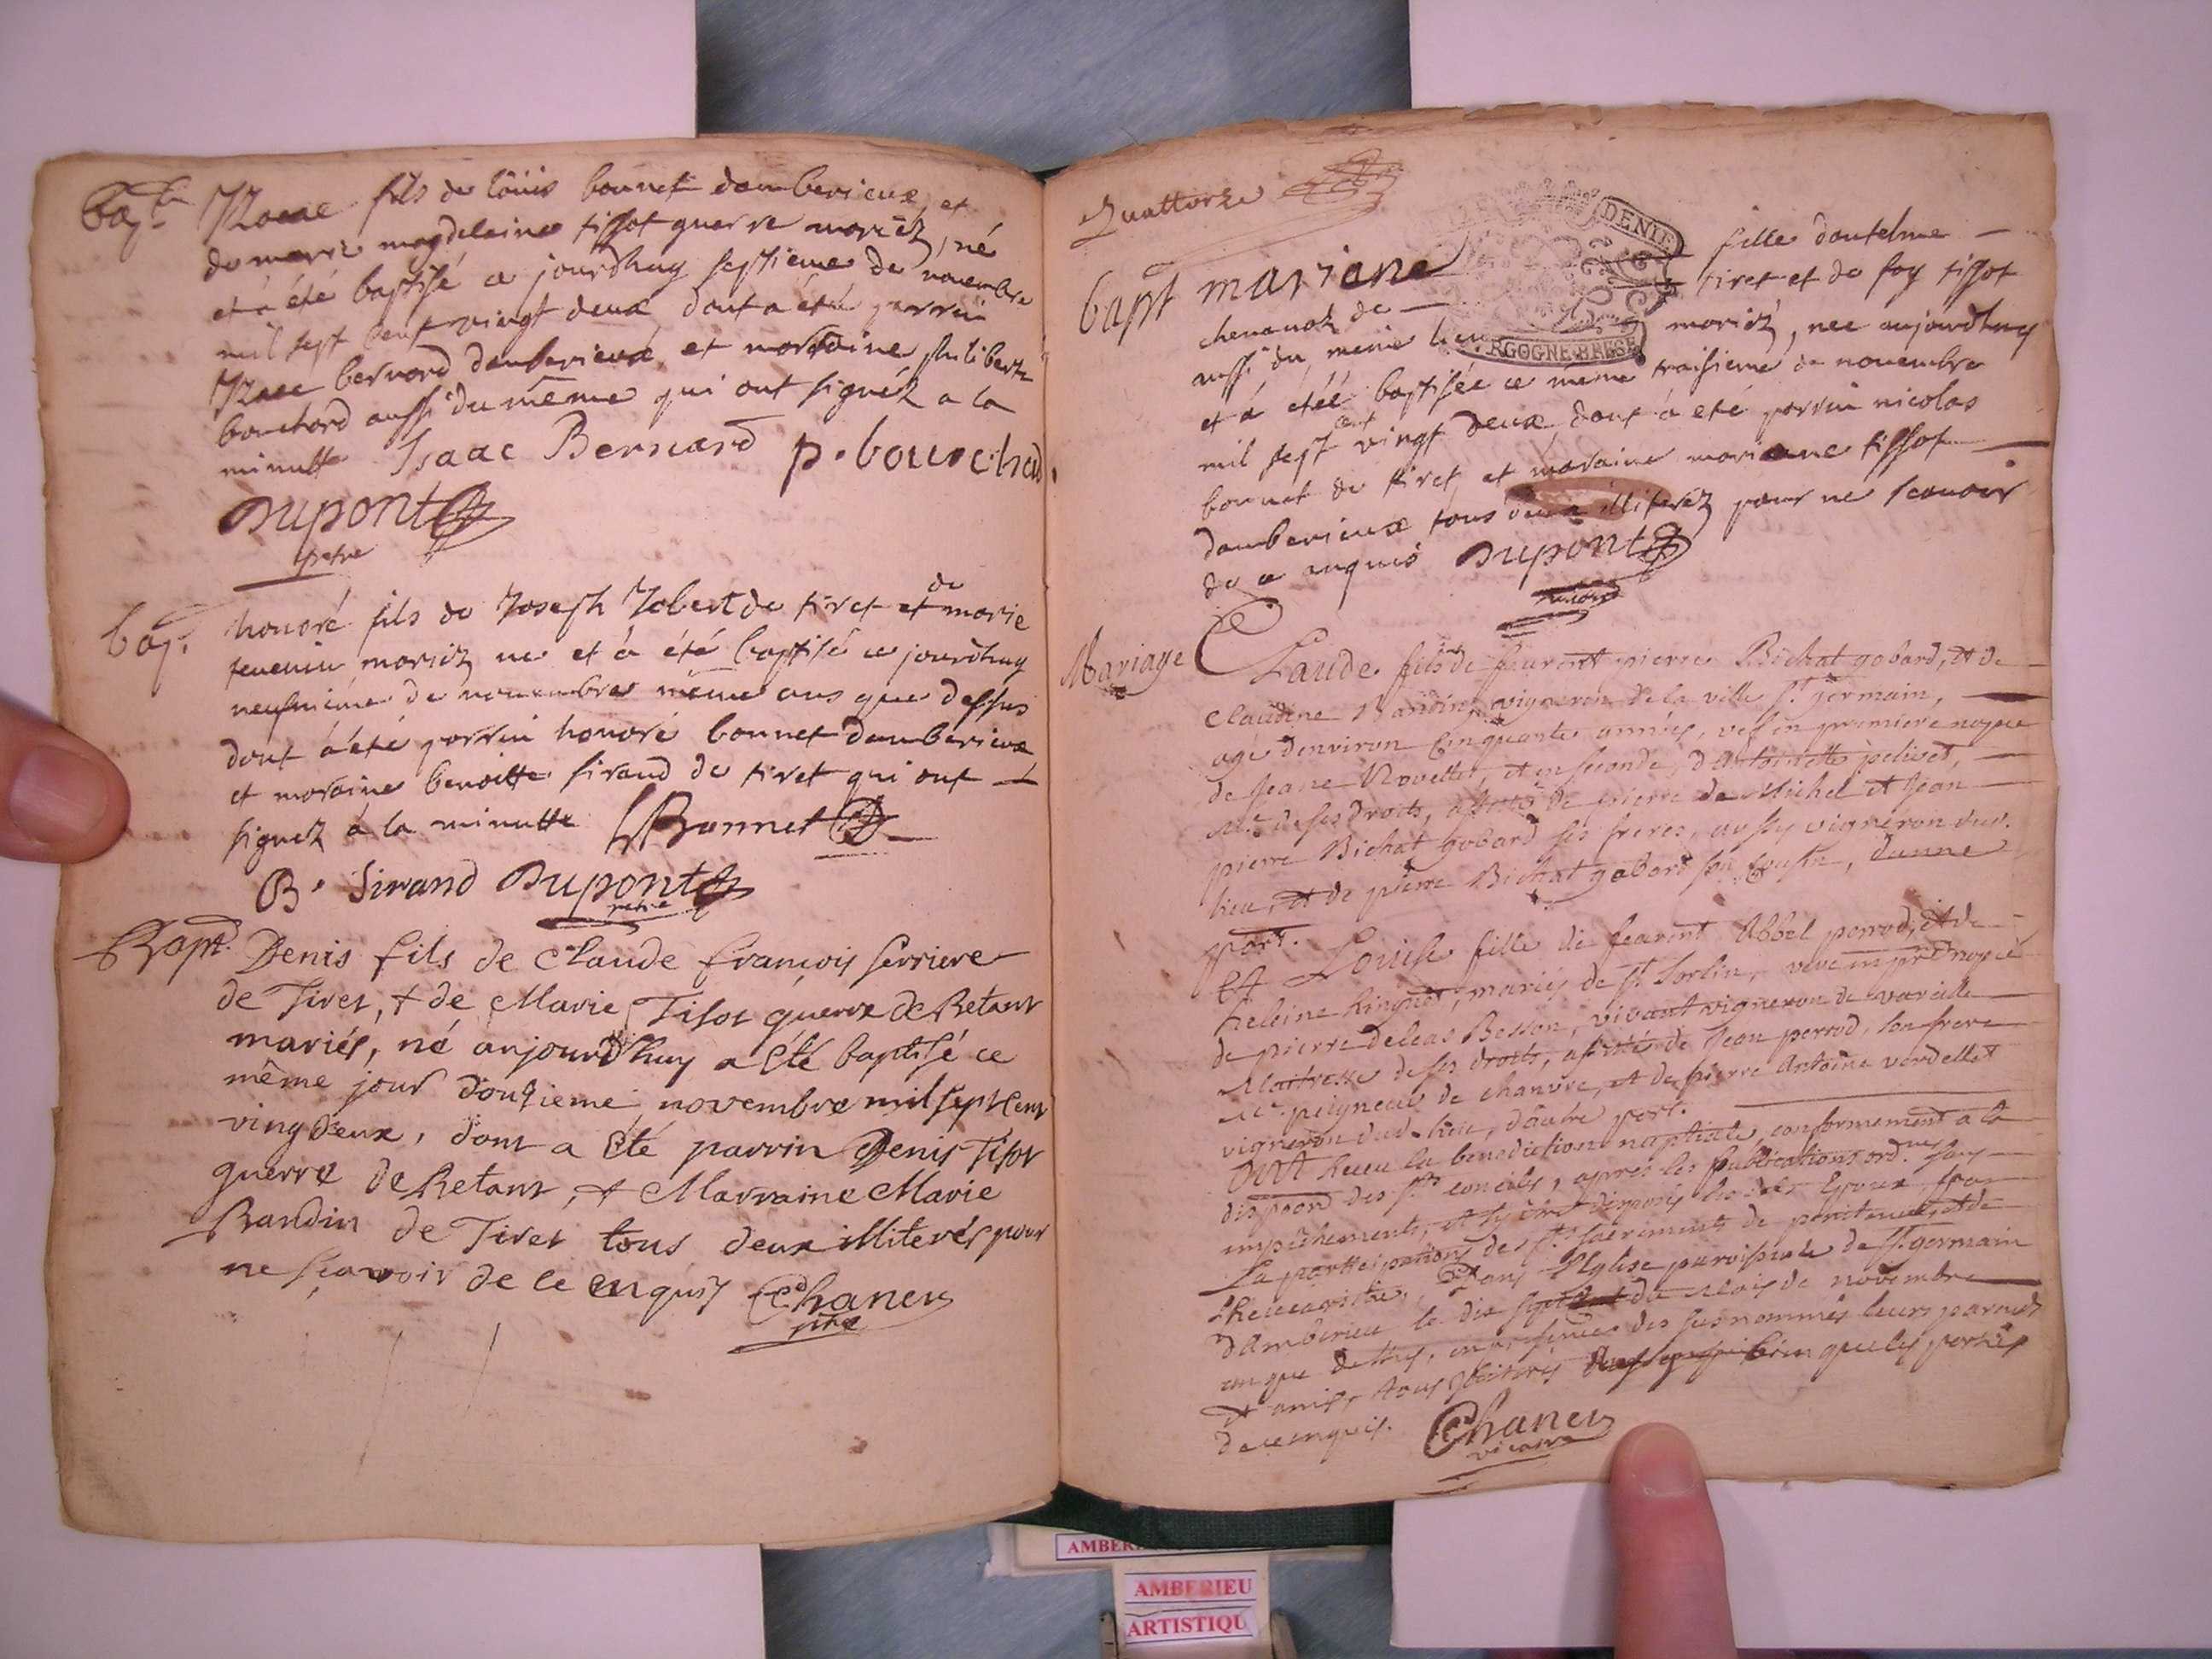 bapt Isaac fils de loüis bonnet damberieux, et
de marie magdelaine tissot guerre mariéz, né
et à été baptisé ce jourdhuy septieme de novembre
mil sept cent vingt deux, dont a été parrin
Isaac bernard damberieux, et marraine philiberte
bouchard aussi du même qui ont signéz a la
minutte Isaac Bernard p. bouchard
Dupont
prtre
bap. honoré fils de Joseph Jobert de tiret et de marie
mariéz né et à été baptisé ce jourdhuy
neufvieme de novembre même ans que dessus
dont à été parrin honoré bonnet damberieux
et maraine benoitte sirand de tiret qui ont
signez à la minutte hBonnet
B. Sirand Dupont
prtre
Bapt. Denis fils de Claude françois serriere
de Tiret, & de Marie Tisot guerre de Retant
mariés, né aujourd'huy a Eté baptisé ce
même jour douzieme novembre mil sept Cent
ving deux, dont a Eté parrin Denis Tisot
guerre de Retant, & Marraine Marie
Bandin de Tiret tous deux illiterés pour
ne sçavoir de ce enquis Chanel
Quattorze
bapt mariane fille dantelme
chenavaz de tiret et de foy tissot
aussi du même lieu mariéz, nee aujourdhuy
et à étéé baptisée ce même traisieme de novembre
mil sept cent vingt deux, dont à eté parrin nicolas
bonnet de tiret, et maraine mariane tissot
damberieux tous deux illiteréz pour ne scavoir
de ce enquis Dupont
DENIE
RGOGNE·BRESE
Mariage Claude fils de feurent pierre Bichat gobard, et de
Claudine Bandin, vigneron de la ville st. germain,
agé denviron Cinquante années, vef en premiere nopce
de Jeane Novellet, et en seconde, d'Antoinette pelivet,
Me. de ses droits, assisté de pierre de Michel et Jean
pierre Bichat gobard ses freres, aussy vigneron dud.
lieu, et de pierre Bichat gobard son Cousin, dunne
part.
Et Louise fille de fearent Abbel perrod, et de
heleine mariés de st. Sorlin, veve en pre nopce
de pierre deleas Besson, vivant vigneron de vareille
Maitresse de ses droits, assisté de Jean perrod, son frere
Me. peigneur de chanvre, et de pierre Antoine verdellet
vigneron dud. lieu, d'autre part.
Ont heceu la benediction nuptiale, conformement a la
des sts conciles, apres les publications ordres sans
impêchements, et sy être disposés les dts Epoux par
La partteipations des sts sacrements de penitence, et de
l'heucaristie, Dans l'Eglise paroissiale de st. germain
d'Amberieu le dix sept du Mois de novembre
an que dessus, en presence des susnommés leurs parents
et amis, tous illiterés bien que les parties
de ce enquis. Chanel
vicaire
AMBER
AMBERIEU
ARTISTIQU